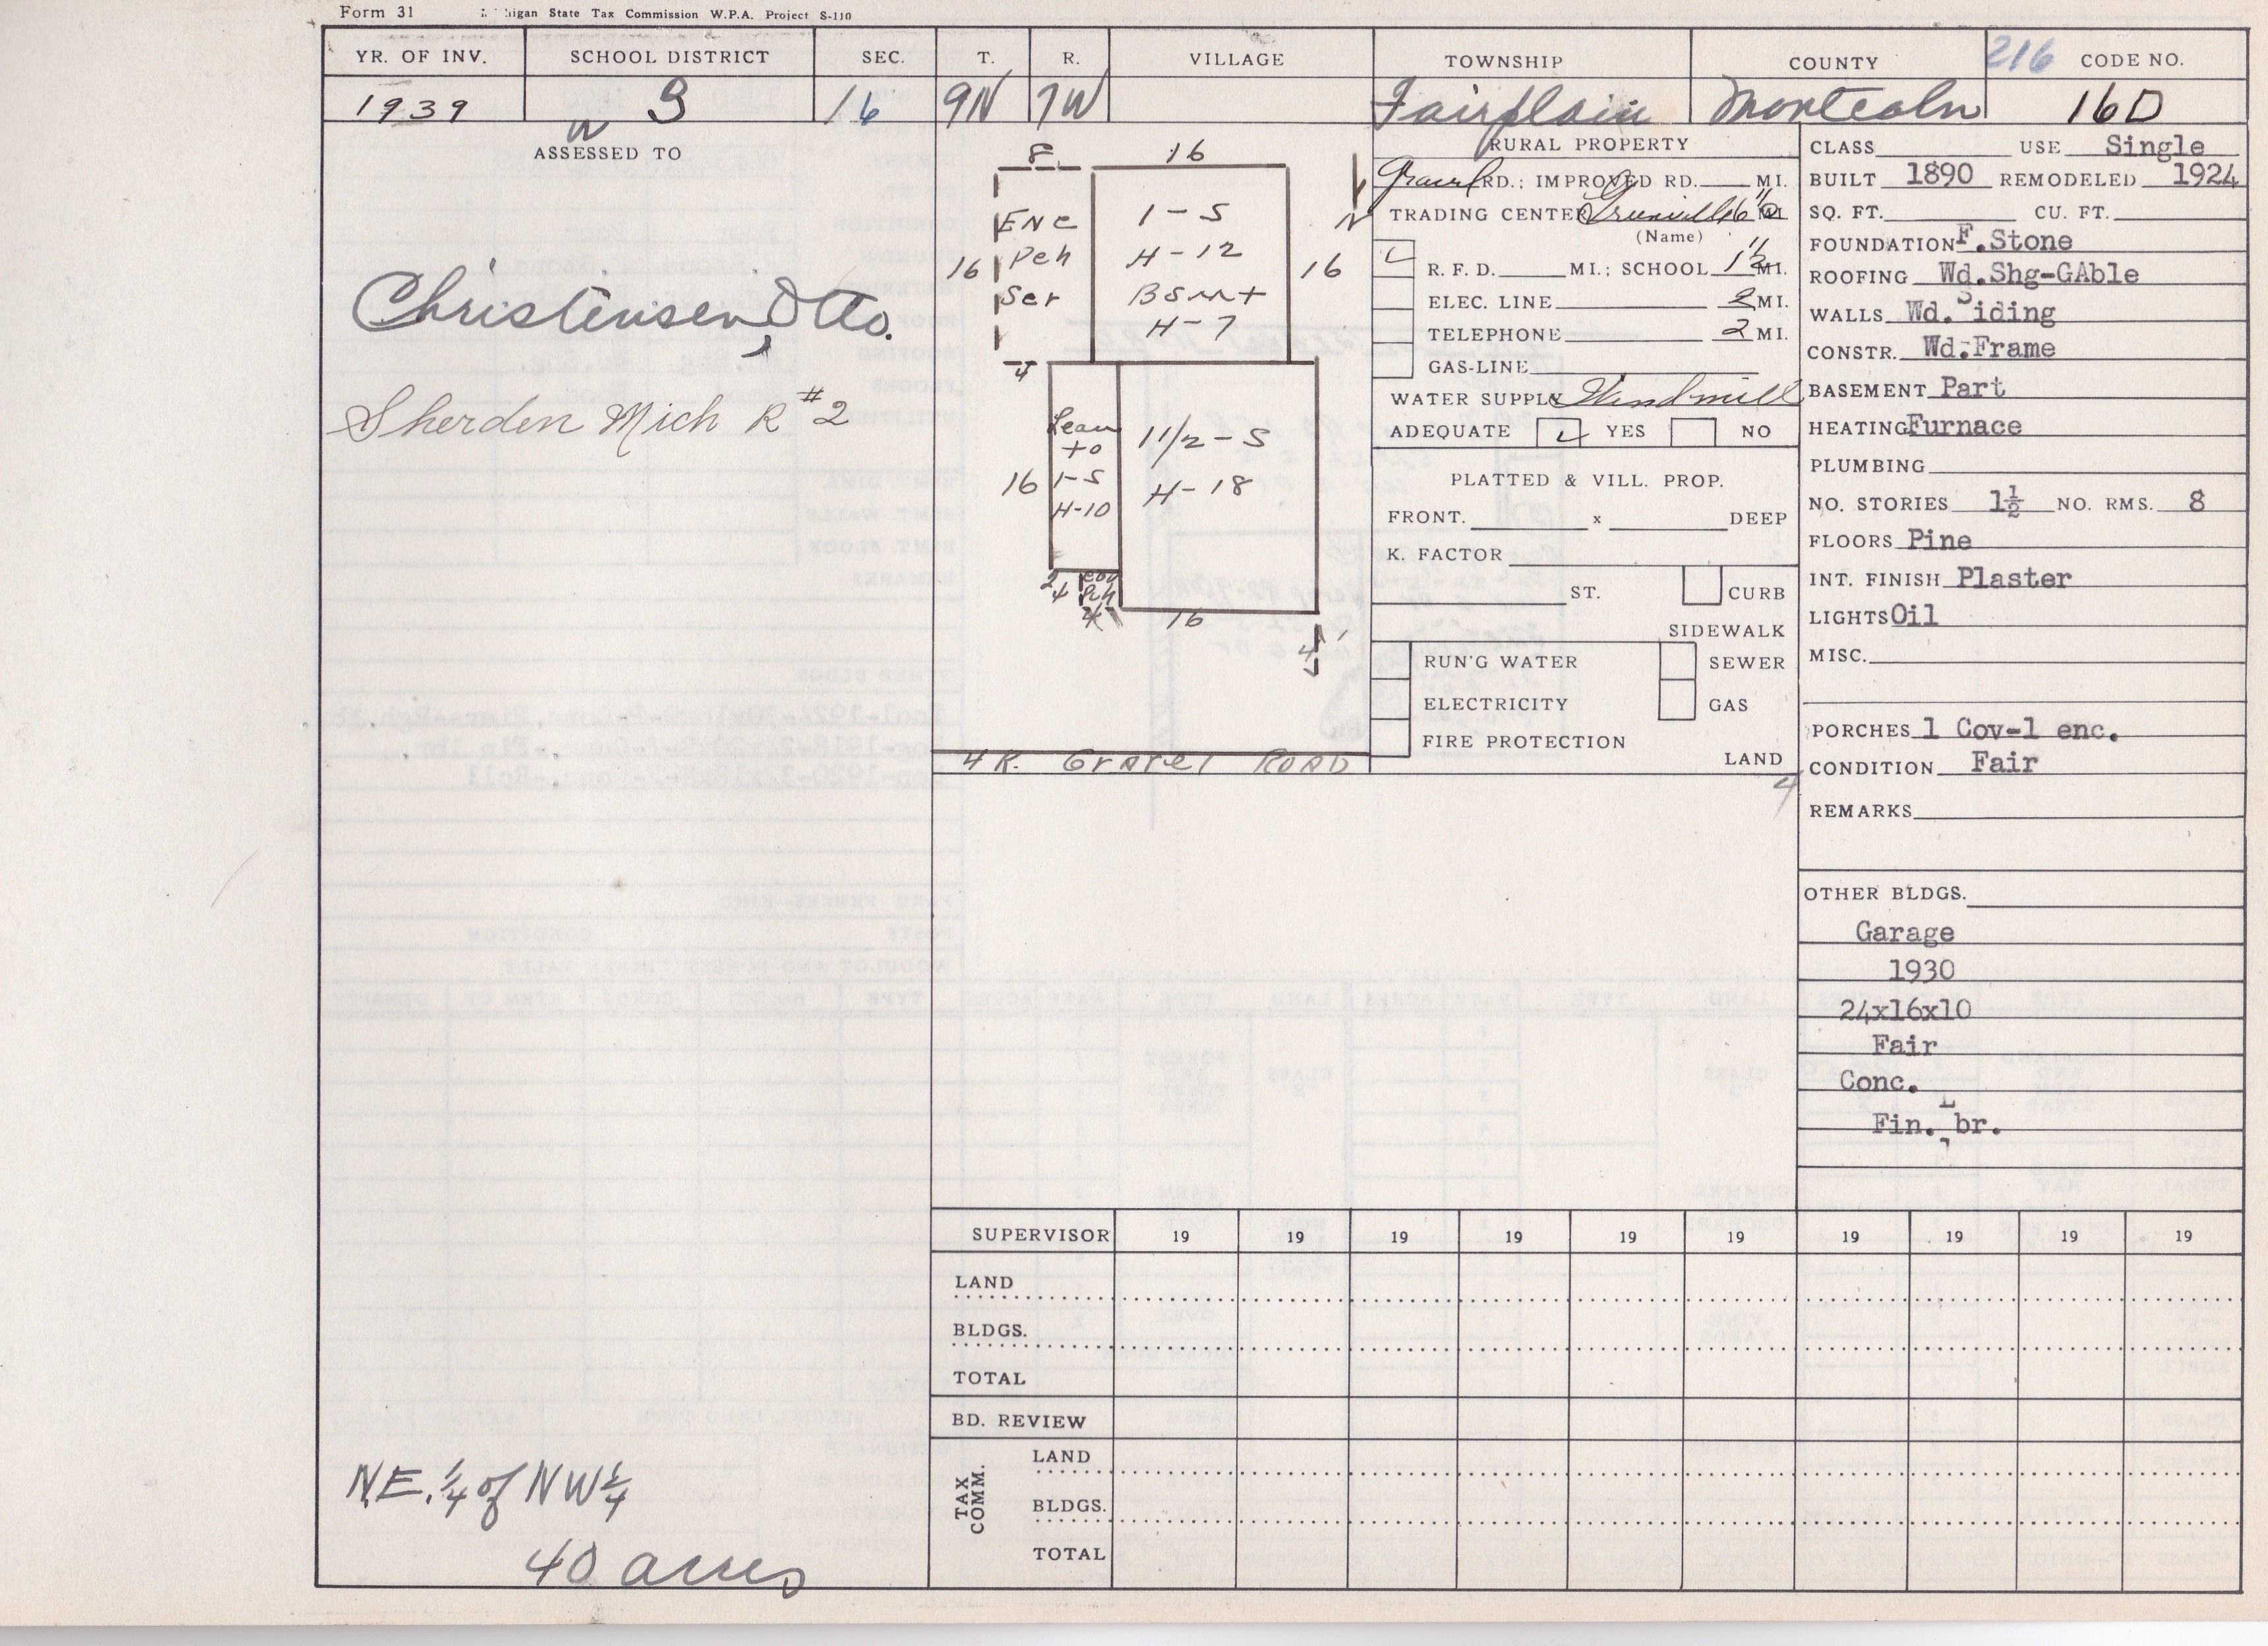 Form 31 higan State Tax Commission W.P.A. Project S-110
YR. OF INV. SCHOOL DISTRICT SEC. T. R. VILLAGE TOWNSHIP COUNTY 216 CODE NO.
1939 16 9N 7W Fairplain Montcalm 16D
ASSESSED TO
Christensen, Otto.
Sherden Mich R #2
NE. 1/4 of NW 1/4
40 acres
8 16
16 Enc Pch Scr
1-S
H-12
Bsmt
H-7
16
4
16 Lean
to
1-S
H-10
1 1/2-S
H-18
2
4
16
4
N
4 R. Gravel Road
RURAL PROPERTY
Gravel RD.; IMPROVED RD. MI.
TRADING CENTER Greenville 6 MI.
(Name)
R. F. D. MI.; SCHOOL 1½ MI.
ELEC. LINE 2 MI.
TELEPHONE 2 MI.
GAS-LINE
WATER SUPPLY Windmill
ADEQUATE YES NO
PLATTED & VILL. PROP.
FRONT. x DEEP
K. FACTOR
ST. CURB
SIDEWALK
RUN'G WATER SEWER
ELECTRICITY GAS
FIRE PROTECTION
LAND
4
CLASS USE Single
BUILT 1890 REMODELED 1924
SQ. FT. CU. FT.
FOUNDATION F.Stone
ROOFING Wd.Shg-GAble
WALLS Wd.Siding
CONSTR. Wd.Frame
BASEMENT Part
HEATING Furnace
PLUMBING
NO. STORIES 1½ NO. RMS. 8
FLOORS Pine
INT. FINISH Plaster
LIGHTS Oil
MISC.
PORCHES 1 Cov-1 enc.
CONDITION Fair
REMARKS
OTHER BLDGS.
Garage
1930
24x16x10
Fair
Conc.
Fin. br.
SUPERVISOR 19 19 19 19 19 19 19 19 19 19
LAND
BLDGS.
TOTAL
BD. REVIEW
TAX COMM.
LAND
BLDGS.
TOTAL